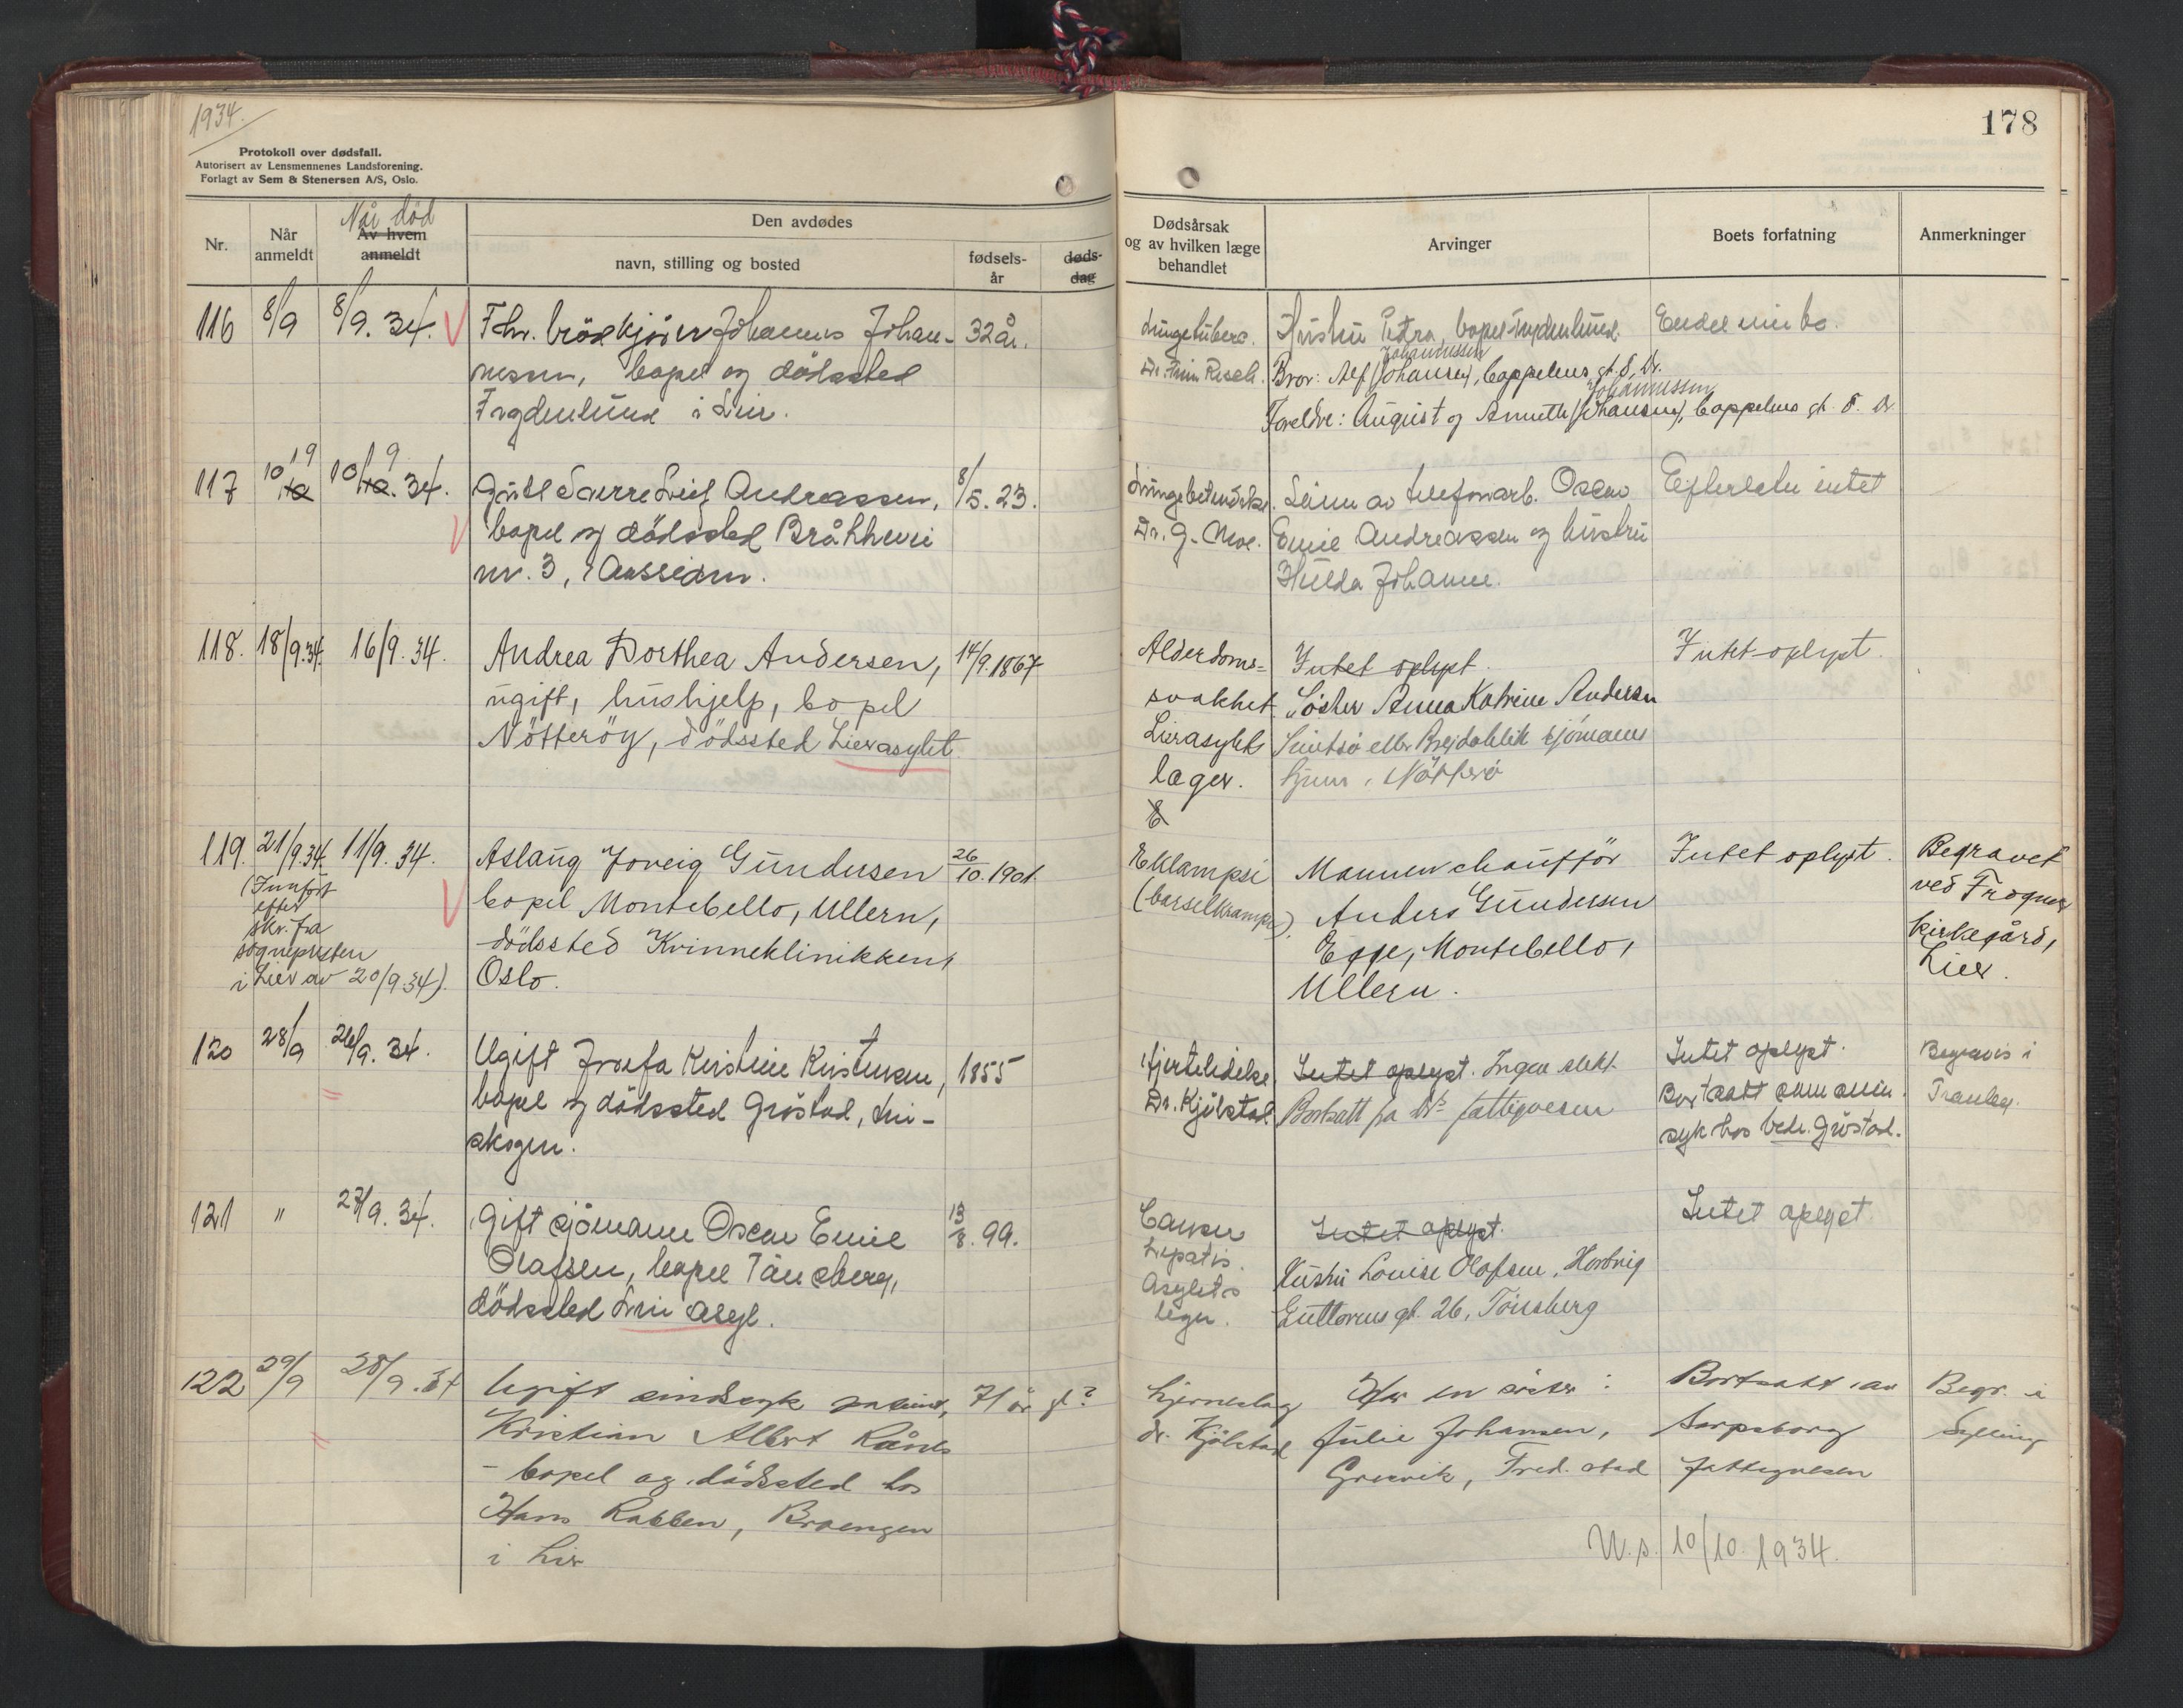 1934.
178
Protokoll over dødsfall.
Autorisert av Lensmennenes Landsforening.
Forlagt av Sem & Stenersen A/S, Oslo.
Nr.
Når anmeldt
Når död
Av hvem anmeldt
Den avdødes
navn, stilling og bosted
fødsels-år
døds-dag
Dødsårsak og av hvilken læge behandlet
Arvinger
Boets forfatning
Anmerkninger
116 8/9 8/9. 34. Fhv. brödkjörer Johannes Johan- 32 år.
nessen, bopel og dödssted
Frydenlund i Lier.
Lungetuberc.
Dr. Finn Resch.
Hustru Petra, bopel Frydenlund.
Johannessen
Bror: Alf (Johansen), Cappelens gt. 8, Dr.
Johannessen
Foreldre: August og Annette (Johansen), Cappelens gt. 8. Dr.
Endel innbo.
117 10/9 10/9. 34. Gutt Sverre Leif Andreassen, 8/5. 23.
bopel og dödssted Bråkhveri
nr. 3, Aassiden.
Lungebetendelse.
Dr. G. Moe.
Sönn av telefonarb. Oscar
Emil Andreassen og hustru
Hulda Johanne.
Efterlater intet
118. 18/9.34. 16/9. 34. Andrea Dorthea Andersen, 14/9.1867
ugift, hushjelp, bopel
Nötteröy, dödssted Lierasylet
Alderdoms-
svakhet.
Lierasylets
læger.
Intet oplyst.
Söster Anna Katrine Andersen
hjem, Nötterö
Intet oplyst.
119. 21/9.34. 11/9. 34. Aslaug Joveig Gundersen 26/10. 1901.
(Innfört
efter
skr. fra
sognepresten
i Lier av 20/9.34).
bopel Montebello, Ullern,
dödssted Kvinneklinikken,
Oslo.
E
Eklampsi
(barselkrampe).
Mannen chaufför
Anders Gundersen
Egge, Montebello,
Ullern.
Intet oplyst.
Begravet
ved Frogner
kirkegård,
Lier.
120 28/9 26/9. 34. Ugift Josefa Kirstine Kristensen, 1855
bopel og dödssted Gröstad, Lier-
skogen.
Hjertelidelse.
Dr. Kjölstad
Intet oplyst. Ingen slekt.
Bortsatt fra Dr.s fattigvesen
Intet oplyst.
Bortsatt som sinn-
syk hos bedr. Gröstad.
Begraves i
Tranby.
121 " 27/9. 34. Gift sjömann Oscar Emil 13/8. 99.
Olafsen, bopel Tönsberg,
dödssted Lier asyl.
Cancer
hepatis.
Asylets
leger.
Intet oplyst.
Hustru Louise Olafsen,
gt. 26, Tönsberg
Intet oplyst
122 29/9 28/9. 34 Ugift sindssyk patient, 71 år gl?
Kristian Albert
- bopel og dödssted hos
Hans Rabben, Braengen
i Lier
Hjerneslag
dr. Kjölstad
Har en söster:
Julie Johansen,
Gresvik, Fred.stad
Bortsatt av
Sarpsborg
fattigvesen
Begr. i
Sylling
U.s. 10/10. 1934.